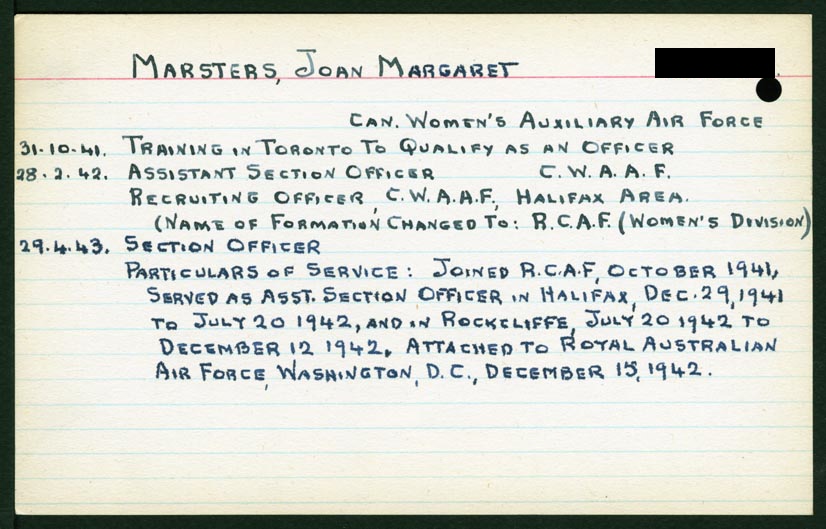 MARSTERS, JOAN MARGARET
CAN. WOMEN'S AUXILIARY AIR FORCE
31.10.41. TRAINING IN TORONTO TO QUALIFY AS AN OFFICER
28.2.42. ASSISTANT SECTION OFFICER C.W.A.A.F.
RECRUITING OFFICER, C.W.A.A.F., HALIFAX AREA.
(NAME OF FORMATION CHANGED TO: R.C.A.F. (WOMEN'S DIVISION)
29.4.43. SECTION OFFICER
PARTICULARS OF SERVICE: JOINED R.C.A.F., OCTOBER 1941,
SERVED AS ASST. SECTION OFFICER IN HALIFAX, DEC. 29, 1941
TO JULY 20 1942, AND IN ROCKCLIFFE, JULY 20 1942 TO
DECEMBER 12 1942. ATTACHED TO ROYAL AUSTRALIAN
AIR FORCE, WASHINGTON, D.C., DECEMBER 15, 1942.